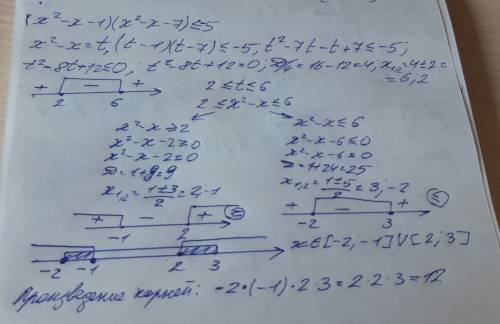 (x²-x-1)(x²-x-7)≤5
x²-x=t, (t-1)(t-7)≤-5; t²-7t-t+7≤-5;
t²-8t+12≤0, t²-8t+12=0; D/4=16-12=4; x₁,₂=4±2=
=6;2
+ − +
2 6
2≤t≤6
2≤x²-x≤6
x²-x≥2
x²-x-2≥0
x²-x-2=0
D=1+8=9
x₁,₂=(1±3)/2=2;-1
x²-x≤6
x²-x-6≤0
x²-x-6=0
D=1+24=25
x₁,₂=(1±5)/2=3;-2
+ − + ≥
-1 2
+ − + ≤
-2 3
-2 -1 2 3
x∈[-2;-1]∪[2;3]
Произведение корней: -2•(-1)•2•3=2•2•3=12